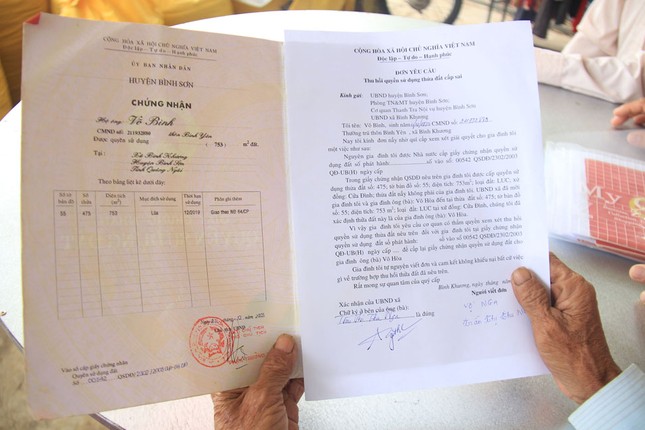 CỘNG HÒA XÃ HỘI CHỦ NGHĨA VIỆT NAM
Độc lập - Tự do - Hạnh phúc
ỦY BAN NHÂN DÂN
HUYỆN BÌNH SƠN
CHỨNG NHẬN
Hộ ông: Võ Bình
CMND số: thôn Bình Yên
Được quyền sử dụng ( 753 ) m² đất.
Tại : Xã Bình Khương
Huyện Bình Sơn
Tỉnh Quảng Ngãi
Theo bảng liệt kê dưới đây:
Số tờ bản đồ
Số thửa
Diện tích (m²)
Mục đích sử dụng
Thời hạn sử dụng
Phần ghi thêm
55 475 753 Lúa 12/2018 Giao theo NĐ 64/CP
Vào sổ cấp giấy chứng nhận
Quyền sử dụng đất
Số 00542 QSDĐ/
CỘNG HÒA XÃ HỘI CHỦ NGHĨA VIỆT NAM
Độc lập – Tự do – Hạnh phúc
ĐƠN YÊU CẦU
Thu hồi quyền sử dụng thửa đất cấp sai
Kính gửi: UBND huyện Bình Sơn;
Phòng TN&MT huyện Bình Sơn;
Cơ quan Thanh Tra Nội vụ huyện Bình Sơn
UBND xã Bình Khương
Tôi tên: Võ Bình, sinh năm CMND số:
Thường trú thôn Bình Yên , xã Bình Khương
Nay tôi kính đơn này nhờ quí cấp xem xét giải quyết cho gia đình tôi
một việc như sau:
Nguyên gia đình tôi được Nhà nước cấp giấy chứng nhận quyền sử
dụng đất số phát hành:..........vào sổ số: 00542 QSDĐ/2302/2003
QĐ-UB(H) ngày cấp
Trong giấy chứng nhận QSDĐ nêu trên gia đình tôi được cấp quyền sử
dụng thửa đất số: 475; tờ bản đồ số: 55; diện tích: 753m²; loại đất: LUC, xứ
đồng: Cửa Đình; thửa đất này
gia đình tôi và gia đình ông (bà) Võ Hòa đến tại thửa đất số: 475; tờ bản đồ
số: 55; diện tích: 753 m²; loại đất: LUC tại xứ đồng: Cửa Đình, chúng tôi đã
xác định thửa đất này là của gia đình ông (bà): Võ Hòa.
Vì vậy gia đình tôi yêu cầu cơ quan có thẩm quyền xem xét thu hồi
quyền sử dụng thửa đất nêu trên đối với gia đình tôi tại giấy chứng nhận quyền
sử dụng đất số phát hành: số vào sổ 00542 QSDĐ/2302/2003
QĐ-UB(H) ngày cấp .... để cấp lại giấy chứng nhận quyền sử dụng đất cho
gia đình ông (bà) Võ Hòa
Gia đình tôi tự nguyện viết đơn và cam kết không khiếu nại bất cứ việc
gì về trường hợp thu hồi thửa đất đã nêu trên.
Rất mong sự quan tâm của quý cấp
Bình Khương, ngày tháng
Xác nhận của UBND xã Người viết đơn
Chữ ký ở bên của ông (bà):
là đúng
Vợ NGA
My